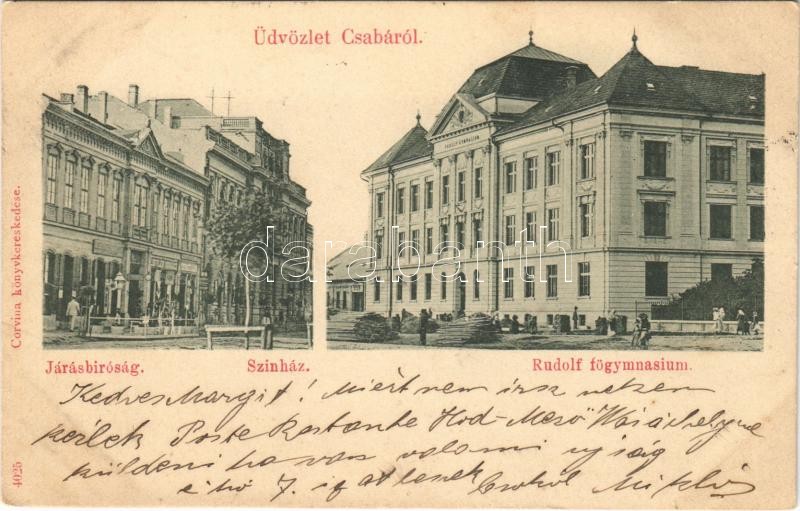 Üdvözlet Csabáról.
RUDOLF GYMNASIUM
Corvina könyvkereskedése.
darabanth
Járásbiróság.
Szinház.
Rudolf főgymnasium.
Kedves Margit! Miért nem irsz nekem
kérlek Poste Restante Hod-Mező Vásárhelyre
küldeni ha van valami ujság
é hó 7. ig ott leszek Csókol Miklós
4025